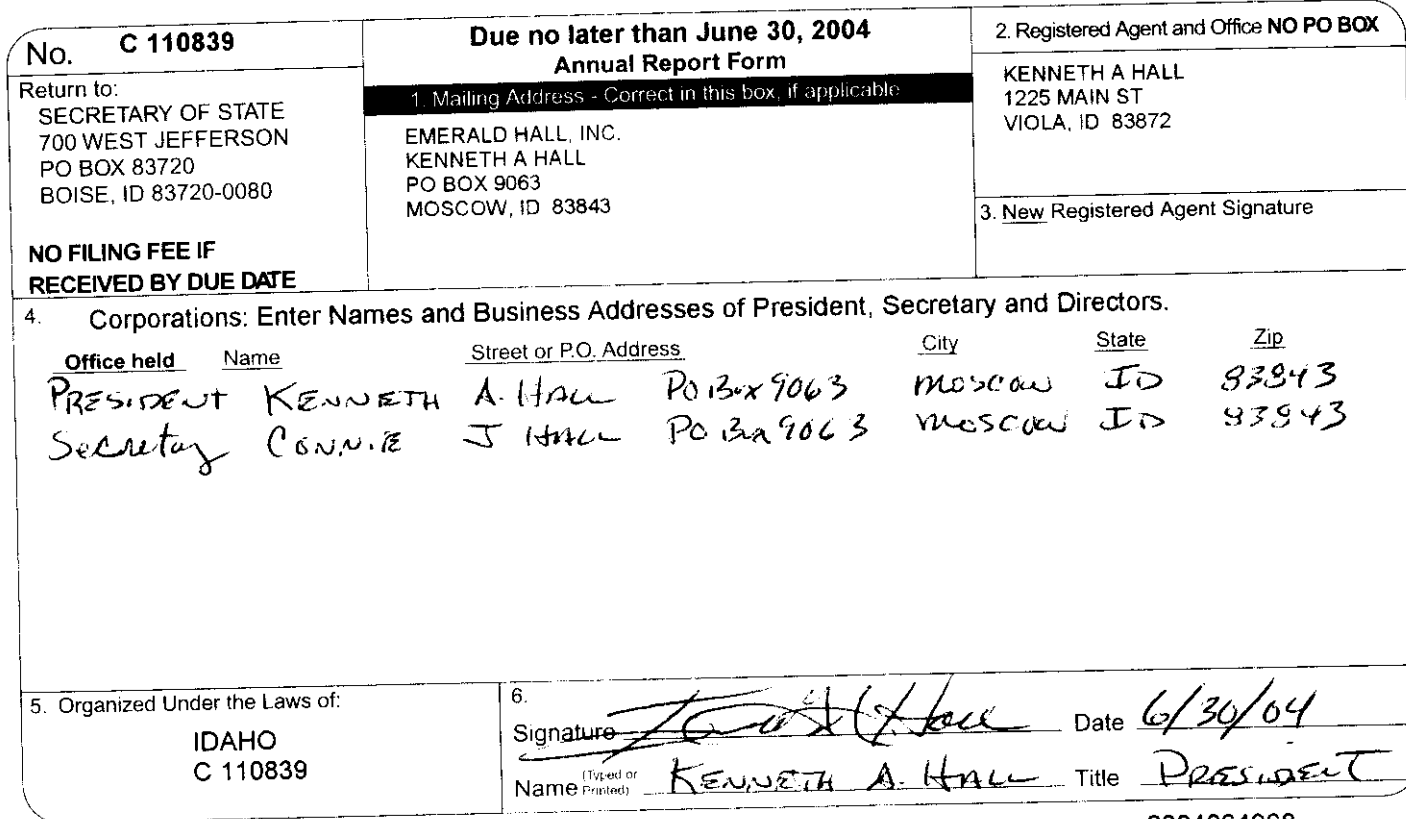 No. C 110839
Return to:
SECRETARY OF STATE
700 WEST JEFFERSON
PO BOX 83720
BOISE, ID 83720-0080
NO FILING FEE IF
RECEIVED BY DUE DATE
Due no later than June 30, 2004
Annual Report Form
1. Mailing Address - Correct in this box, if applicable
EMERALD HALL, INC.
KENNETH A HALL
PO BOX 9063
MOSCOW, ID 83843
2. Registered Agent and Office NO PO BOX
KENNETH A HALL
1225 MAIN ST
VIOLA, ID 83872
3. New Registered Agent Signature
4. Corporations: Enter Names and Business Addresses of President, Secretary and Directors.
Office held Name Street or P.O. Address City State Zip
PRESIDENT KENNETH A. HALL PO Box 9063 MOSCOW ID 83843
Secretary CONNIE J HALL PO Box 9063 MOSCOW ID 83843
5. Organized Under the Laws of:
IDAHO
C 110839
6.
Signature Kenneth A. Hall Date 6/30/04
Name (Typed or Printed) KENNETH A. HALL Title PRESIDENT